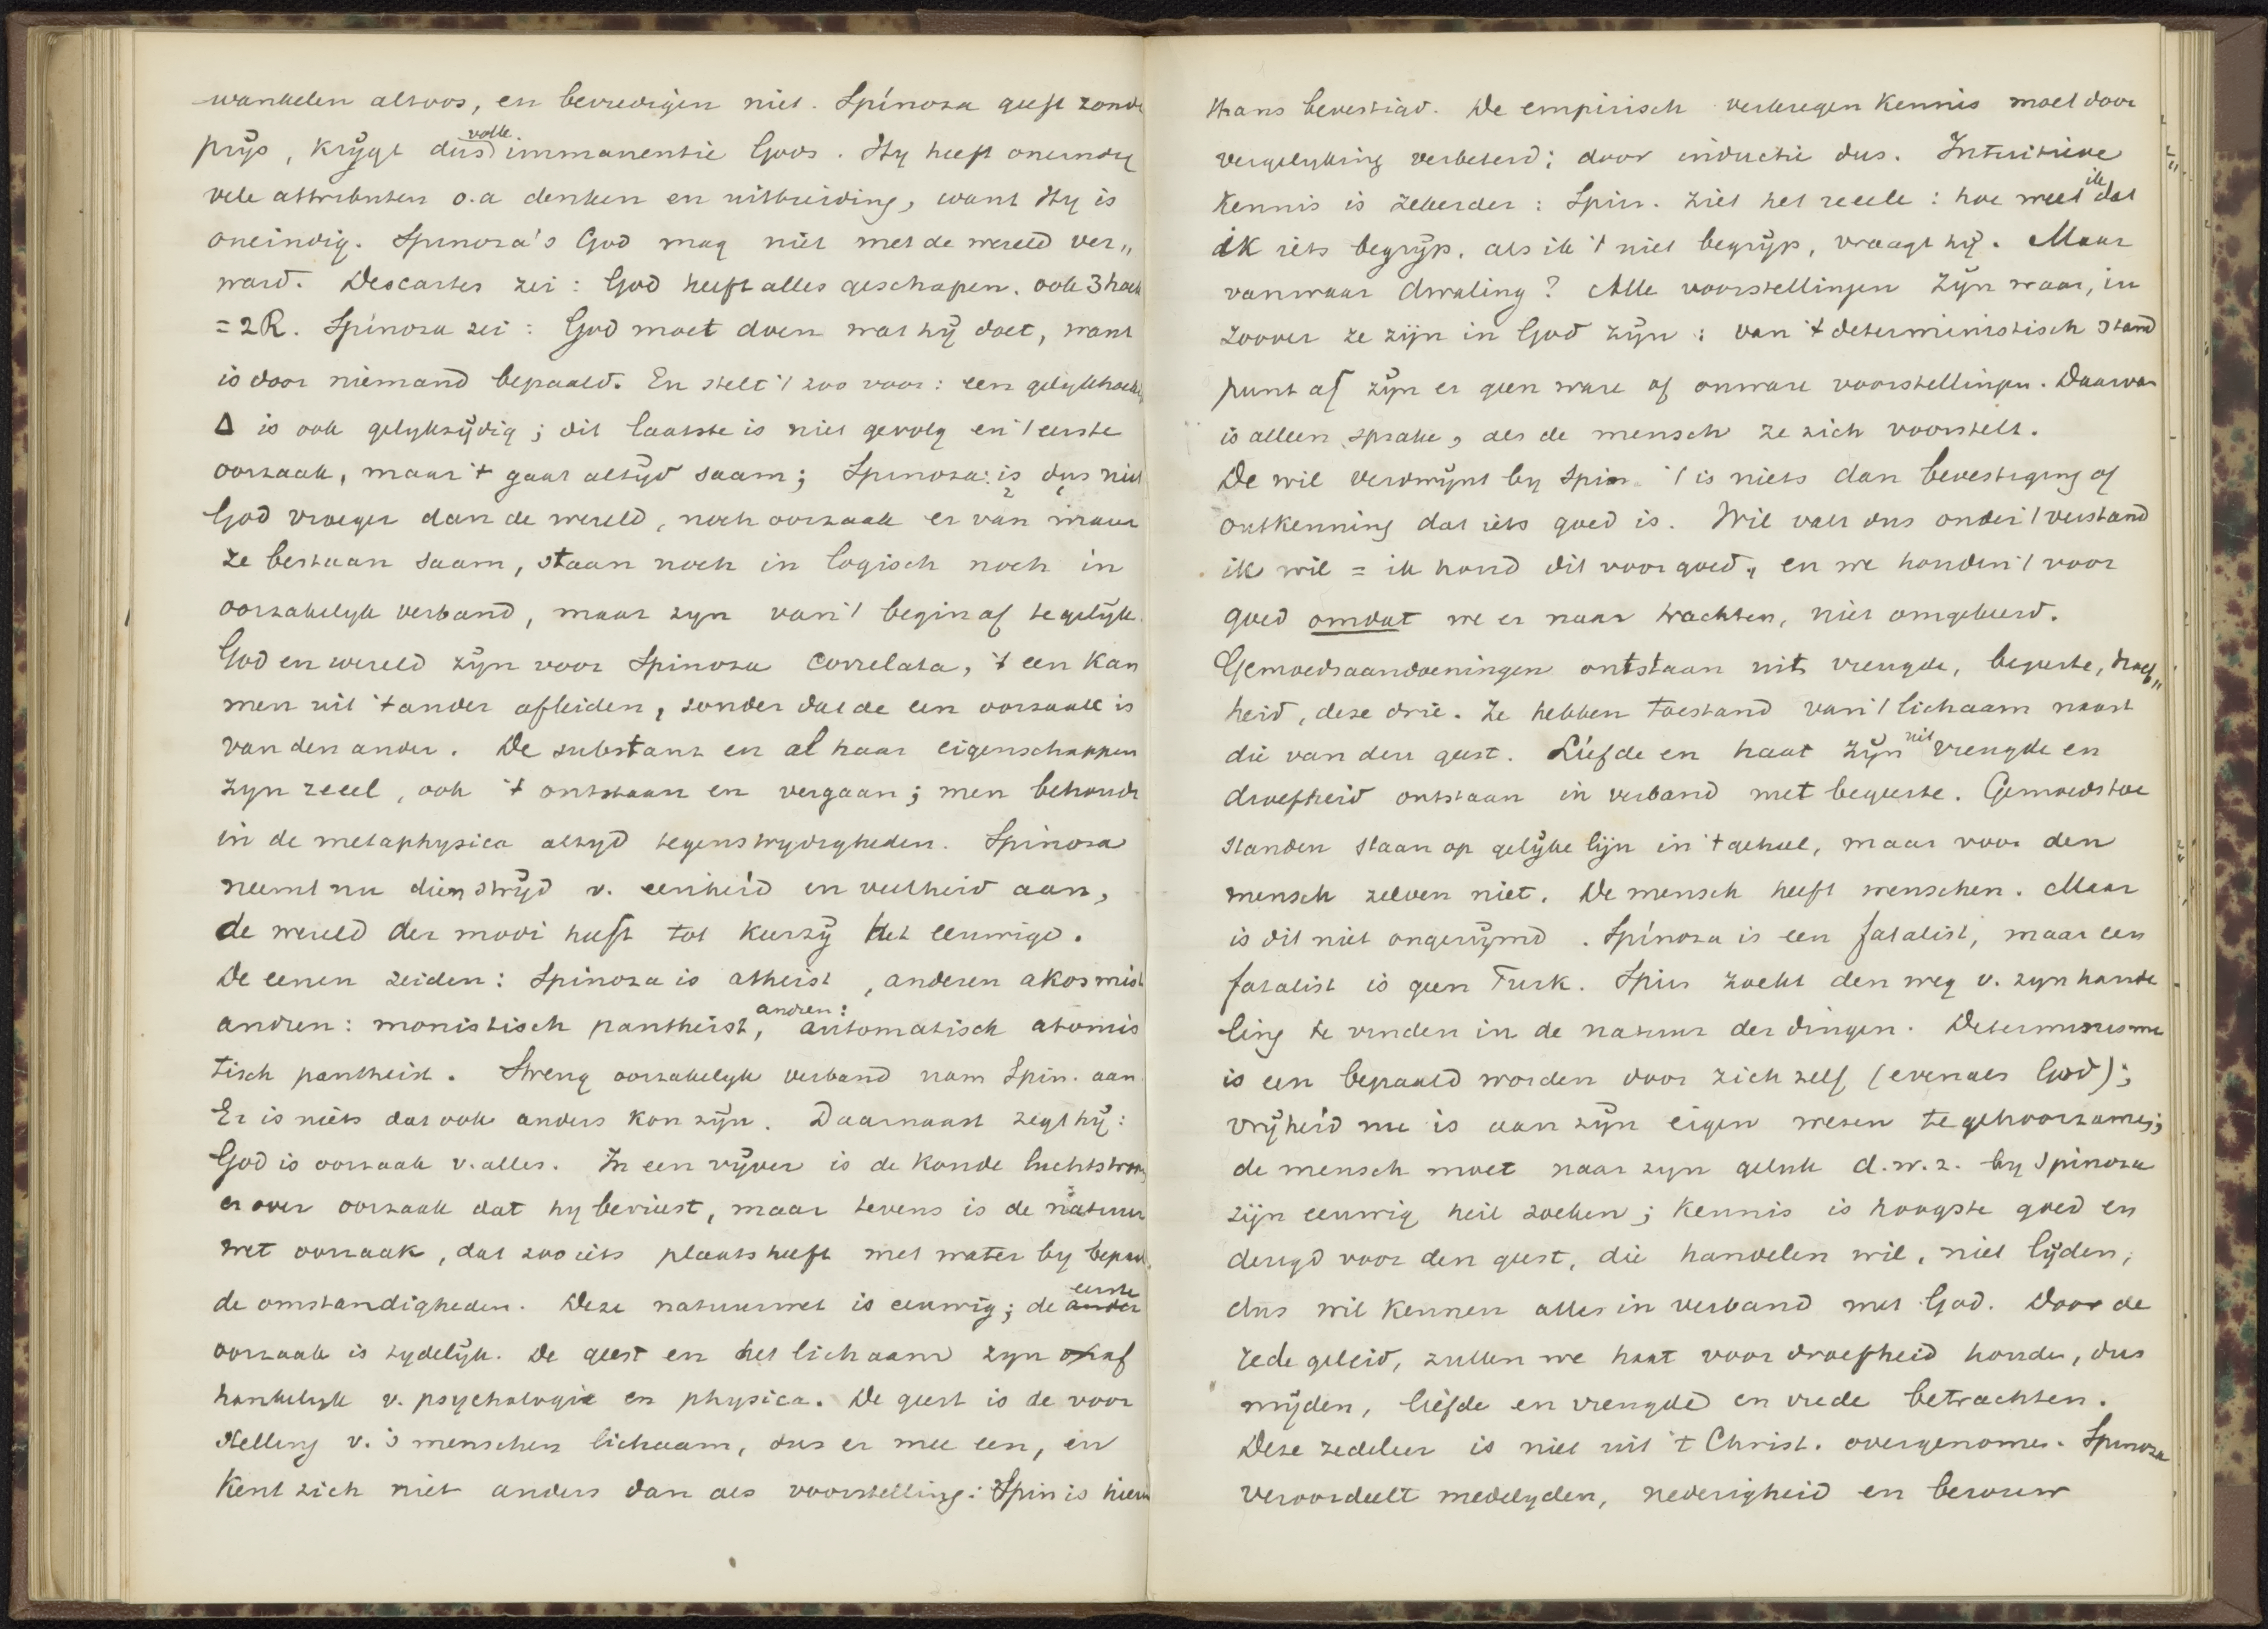 wankelen altoos, en bevredigen niet. Spinoza geeft zonde
prijs, krijgt dus volle immanentie Gods. Hy heeft oneindig
vele attributen o.a denken en uitbreiding, want Hy is
oneindig. Spinoza's God mag niet met de wereld ver„
ward. Descartes zei: God heeft alles geschapen. ook 3 hoek
= 2R. Spinoza zei: God moet doen wat hij doet, want
is door niemand bepaald. En stelt 't zoo voor: een gelijkhoek
Δ is ook gelykzijdig; dit laatste is niet gevolg en 't eerste
oorzaak, maar 't gaat altijd saam; Spinoza: is dus niet
God vroeger dan de wereld, noch oorzaak er van maar
ze bestaan saam, staan noch in logisch noch in
oorzakelyk verband, maar zyn van 't begin af tegelijk.
God en wereld zijn voor Spinoza correlata, 't een kan
men uit 't ander afleiden, zonder dat de een oorzaak is
van den ander. De substant en al haar eigenschappen
zyn reeel, ook 't ontstaan en vergaan; men behoudt
in de metaphysica altyd tegenstrydigheden. Spinoza
neemt nu dien strijd v. eenheid en veelheid aan,
de wereld der modi heeft tot keerzij het eeuwige.
De eenen zeiden: Spinoza is atheist, anderen akosmist
andren: monistisch pantheist, andren: automatisch atomis
tisch pantheist. Streng oorzakelyk verband nam Spin. aan
Er is niets dat ook anders kon zijn. Daarnaast zegt hij:
God is oorzaak v. alles. In een vijver is de koude luchtstroom
er over oorzaak dat hy bevriest, maar tevens is de natuur
wet oorzaak, dat zoo iets plaats heeft met water by bepaal
de omstandigheden. Deze natuurwet is eeuwig; de ander eerste
oorzaak is tydelijk. De geest en het lichaam zyn onaf
hankelyk v. psychologie en physica. De geest is de voor
stelling v. 's menschen lichaam, dus er mee een, en
kent zich niet anders dan als voorstelling: Spin is hierin
thans bevestigd. De empirisch verkregen kennis moet door
vergelyking verbeterd; door inductie dus. Intuitieve
kennis is zekerder: Spin. ziet het reeele: hoe weet ik dat
ik iets begrijp, als ik 't niet begrijp, vraagt hij. Maar
vanwaar dwaling? Alle voorstellingen zijn waar, in
zoover ze zijn in God zijn: van 't deterministisch stand
punt af zijn er geen ware of onware voorstellingen. Daarvan
is alleen sprake, als de mensch ze zich voorstelt.
De wil verdwijnt by Spin 't is niets dan bevestiging of
ontkenning dat iets goed is. Wil valt dus onder 't verstand
ik wil = ik houd dit voor goed, en we houden 't voor
goed omdat we er naar trachten, niet omgekeerd.
Gemoedsaandoeningen ontstaan uit vreugde, begeerte, droef„
heid, deze drie. Ze hebben toestand van 't lichaam naast
die van den geest. Liefde en haat zijn uit vreugde en
droefheid ontstaan in verband met begeerte. Gemoedstoe
standen staan op gelijke lijn in 't geheel, maar voor den
mensch zelven niet. De mensch heeft wenschen. Maar
is dit niet ongerijmd. Spinoza is een fatalist, maar een
fatalist is geen Turk. Spin zoekt den weg v. zyn hande
ling te vinden in de natuur der dingen. Determinisme
is een bepaald worden door zich zelf (evenals God);
vrijheid nu is aan zijn eigen wezen te gehoorzamen;
de mensch moet naar zyn geluk d.w.z. by Spinoza
zijn eeuwig heil zoeken; kennis is hoogste goed en
deugd voor den geest, die handelen wil, niet lijden,
dus wil kennen alles in verband met God. Door de
rede geleid, zullen we haat voor droefheid houden, dus
mijden, liefde en vreugde en vrede betrachten.
Deze zedeleer is niet uit 't Christ. overgenomen. Spinoza
veroordeelt medelyden, nederigheid en berouw